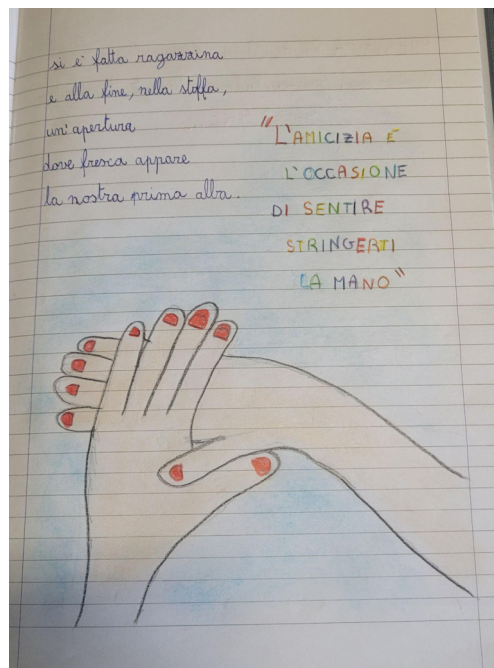 si e' fatta ragazzina
e alla fine, nella stoffa,
un'apertura
dove fresca appare
la nostra prima alba..
"L'AMICIZIA È
L'OCCASIONE
DI SENTIRE
STRINGERTI
LA MANO"